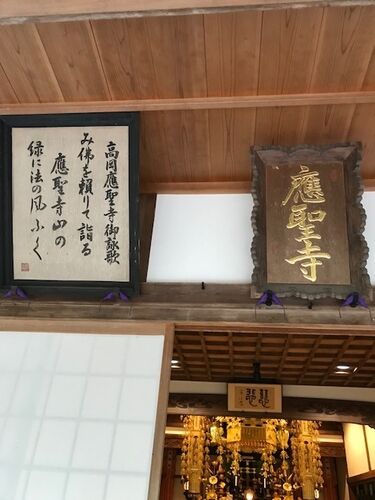 應聖寺
高岡應聖寺御詠歌
み佛を頼りて詣る
應聖寺山の
緑に法の風ふく